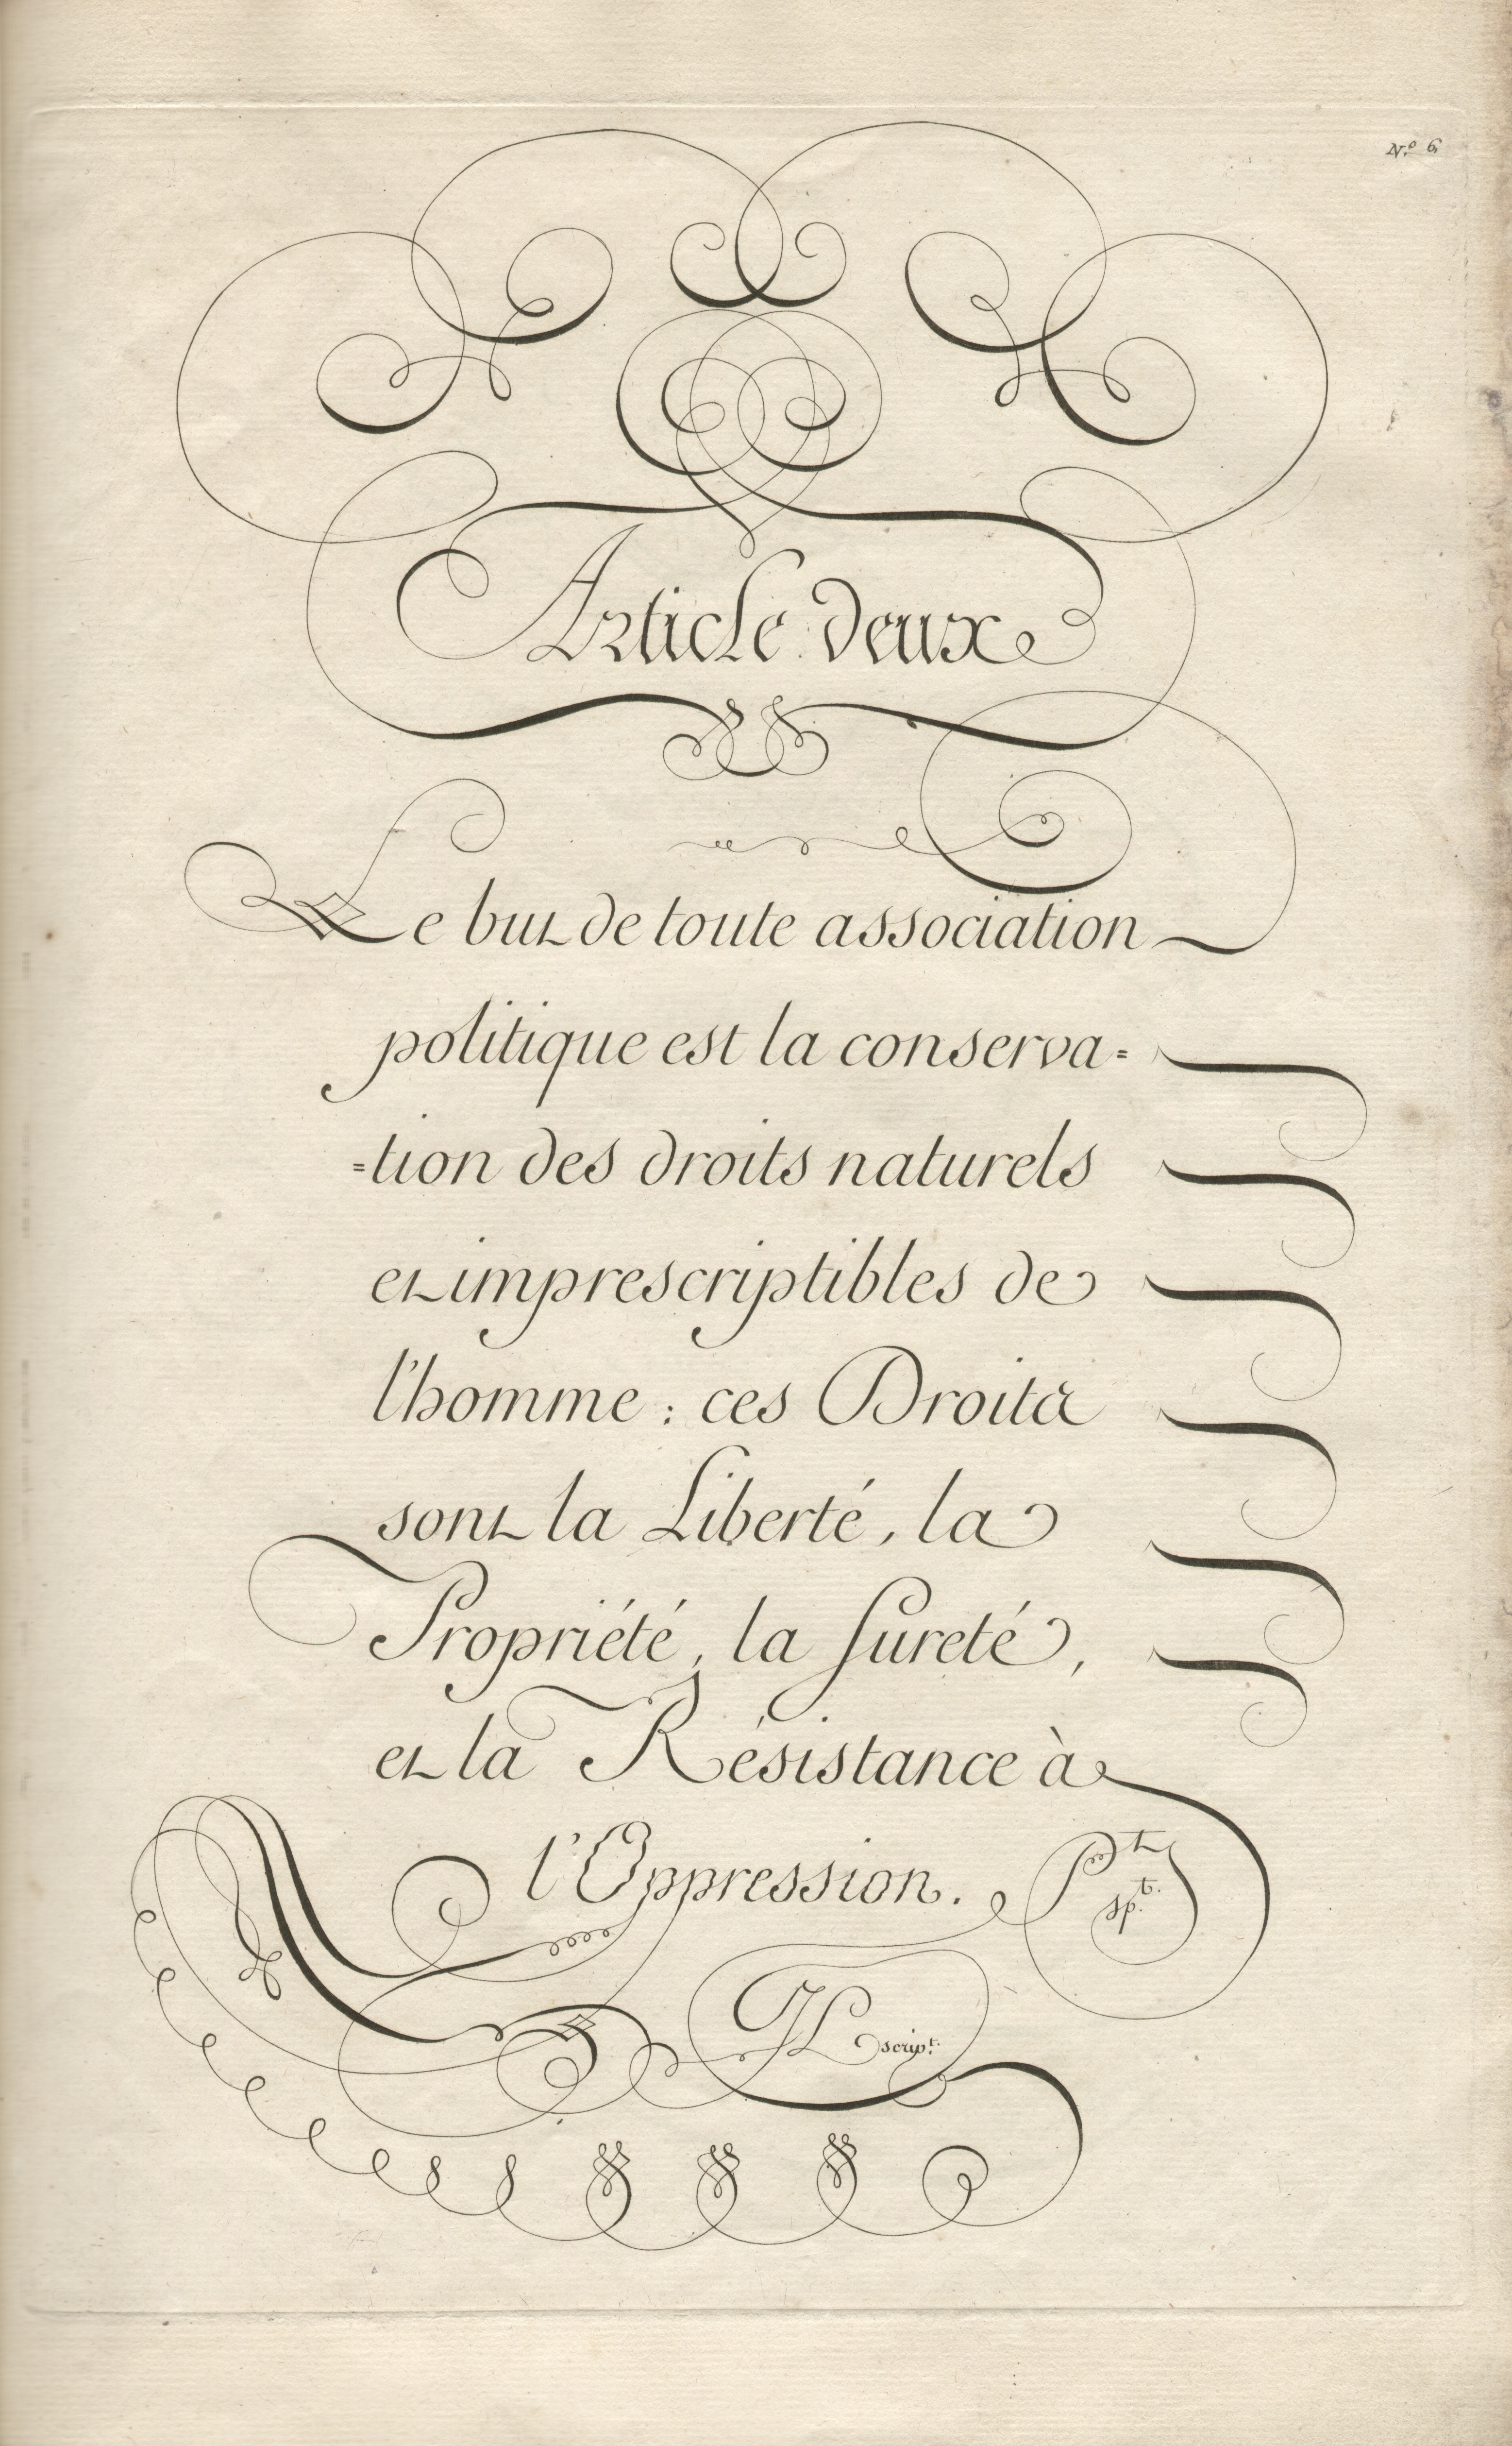 N.º 6
Article deux
Le but de toute association
politique est la conserva=
=tion des droits naturels
et imprescriptibles de
l'homme : ces Droits
sont la Liberté, la
Propriété, la sureté,
et la Résistance à
l'Oppression.
sp.t
scrip.t